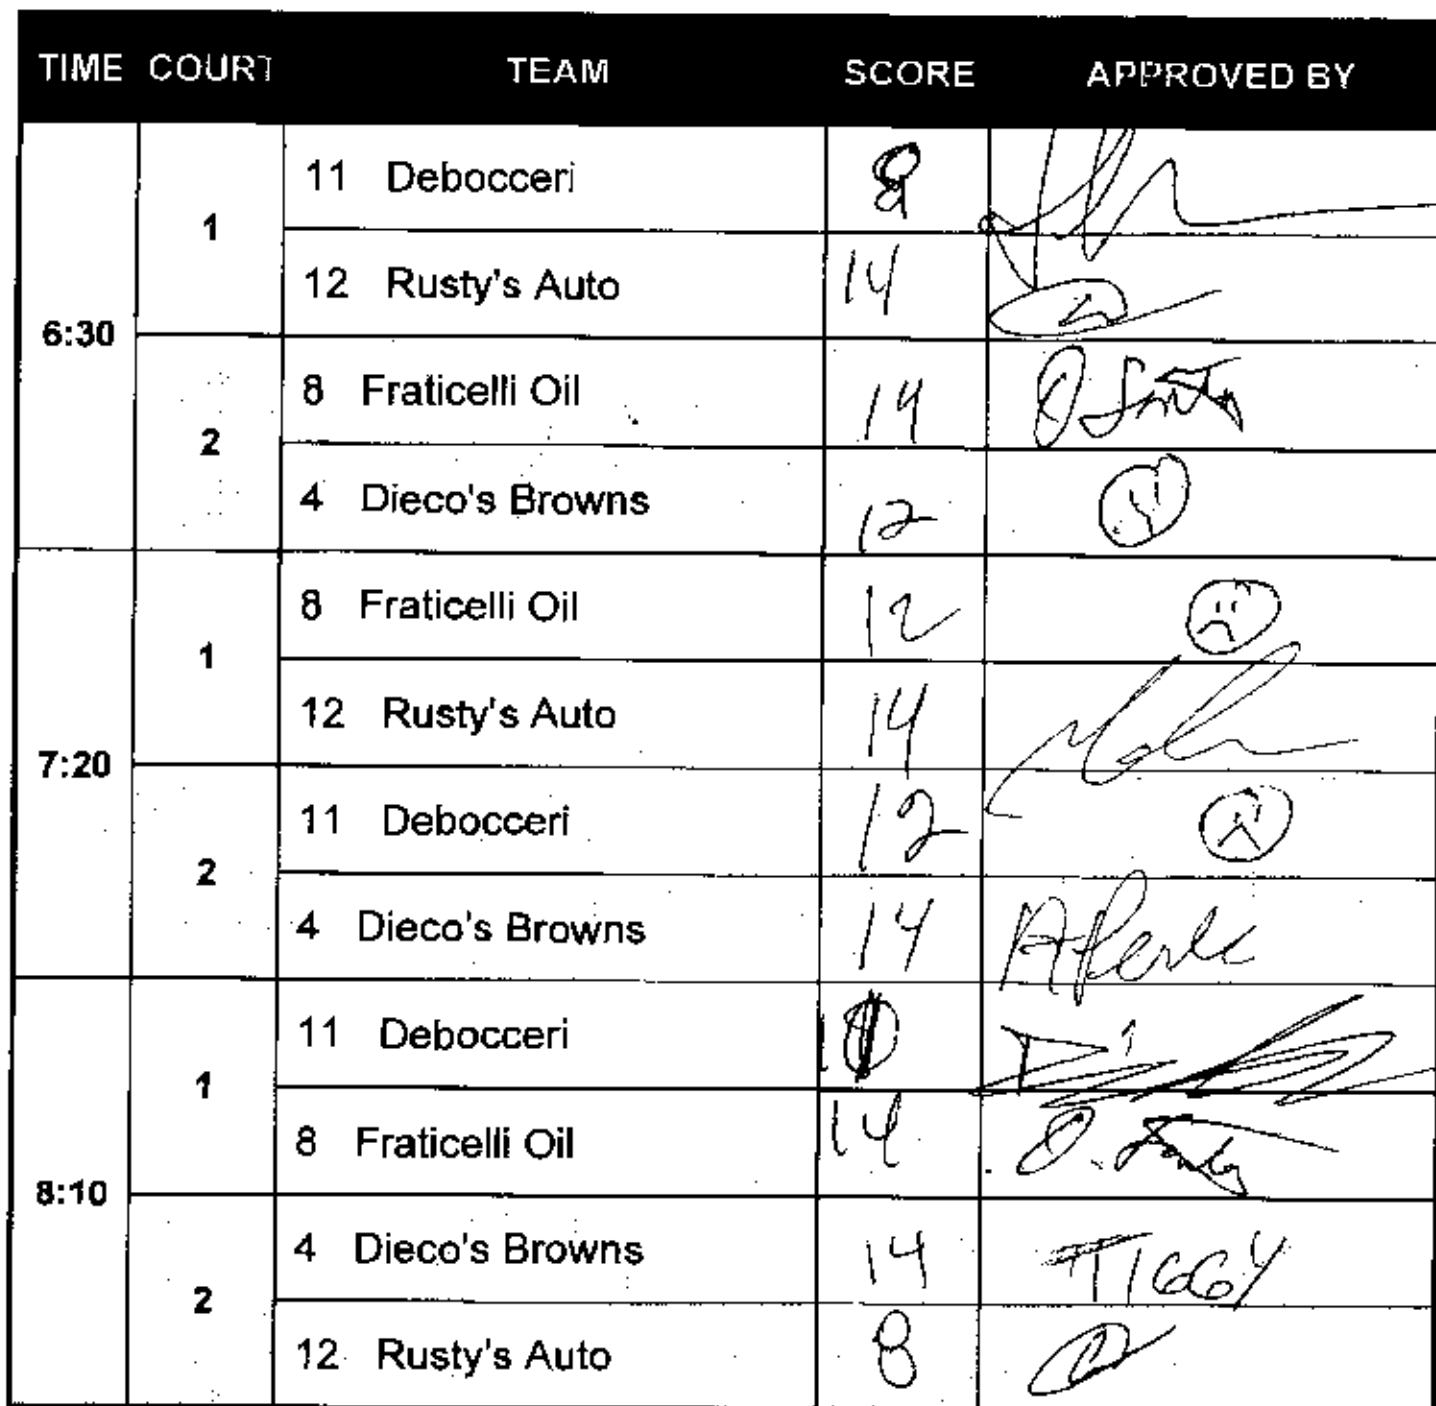 TIME COURT TEAM SCORE APPROVED BY
6:30
1
11 Debocceri
12 Rusty's Auto 14
2
8 Fraticelli Oil 14
4 Dieco's Browns 12
7:20
1
8 Fraticelli Oil 12
12 Rusty's Auto 14
2
11 Debocceri 12
4 Dieco's Browns 14
8:10
1
11 Debocceri
8 Fraticelli Oil 14
2
4 Dieco's Browns 14 TIGGY
12 Rusty's Auto 8